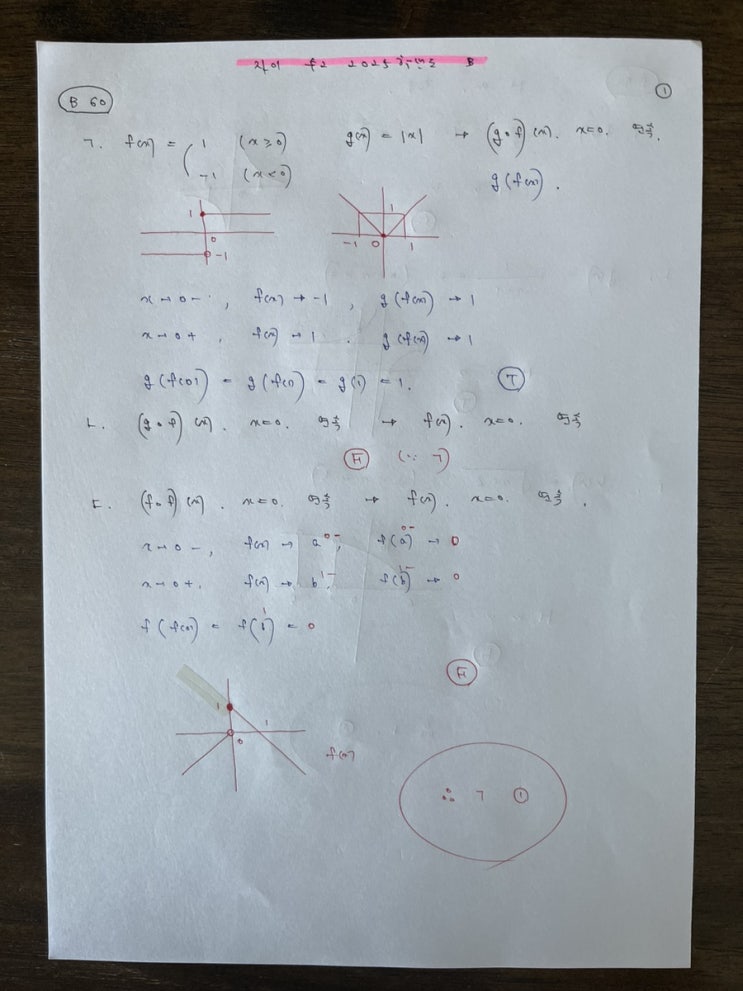 자이 수2 2023 B
B 60
①
ㄱ. f(x) = ( 1 (x ≥ 0) g(x) = |x| → (g∘f)(x). x=0. 연속.
-1 (x < 0) g(f(x)).
1 0 -1
1 -1 0 1
x→0-, f(x)→-1, g(f(x))→1
x→0+, f(x)→1. g(f(x))→1
g(f(0)) = g(f(0)) = g(1) = 1. Ⓣ
ㄴ. (g∘f)(x). x=0. 연속 → f(x). x=0. 연속
Ⓕ (∵ ㄱ)
ㄷ. (f∘f)(x). x=0. 연속 → f(x). x=0. 연속.
x→0-, f(x)→ a 0-, f(a) 0- → 0
x→0+. f(x)→ b 1-. f(b) 1- → 0
f(f(0)) = f(b) 1 = 0
Ⓕ
1 0 1
f(x)
∴ ㄱ ①